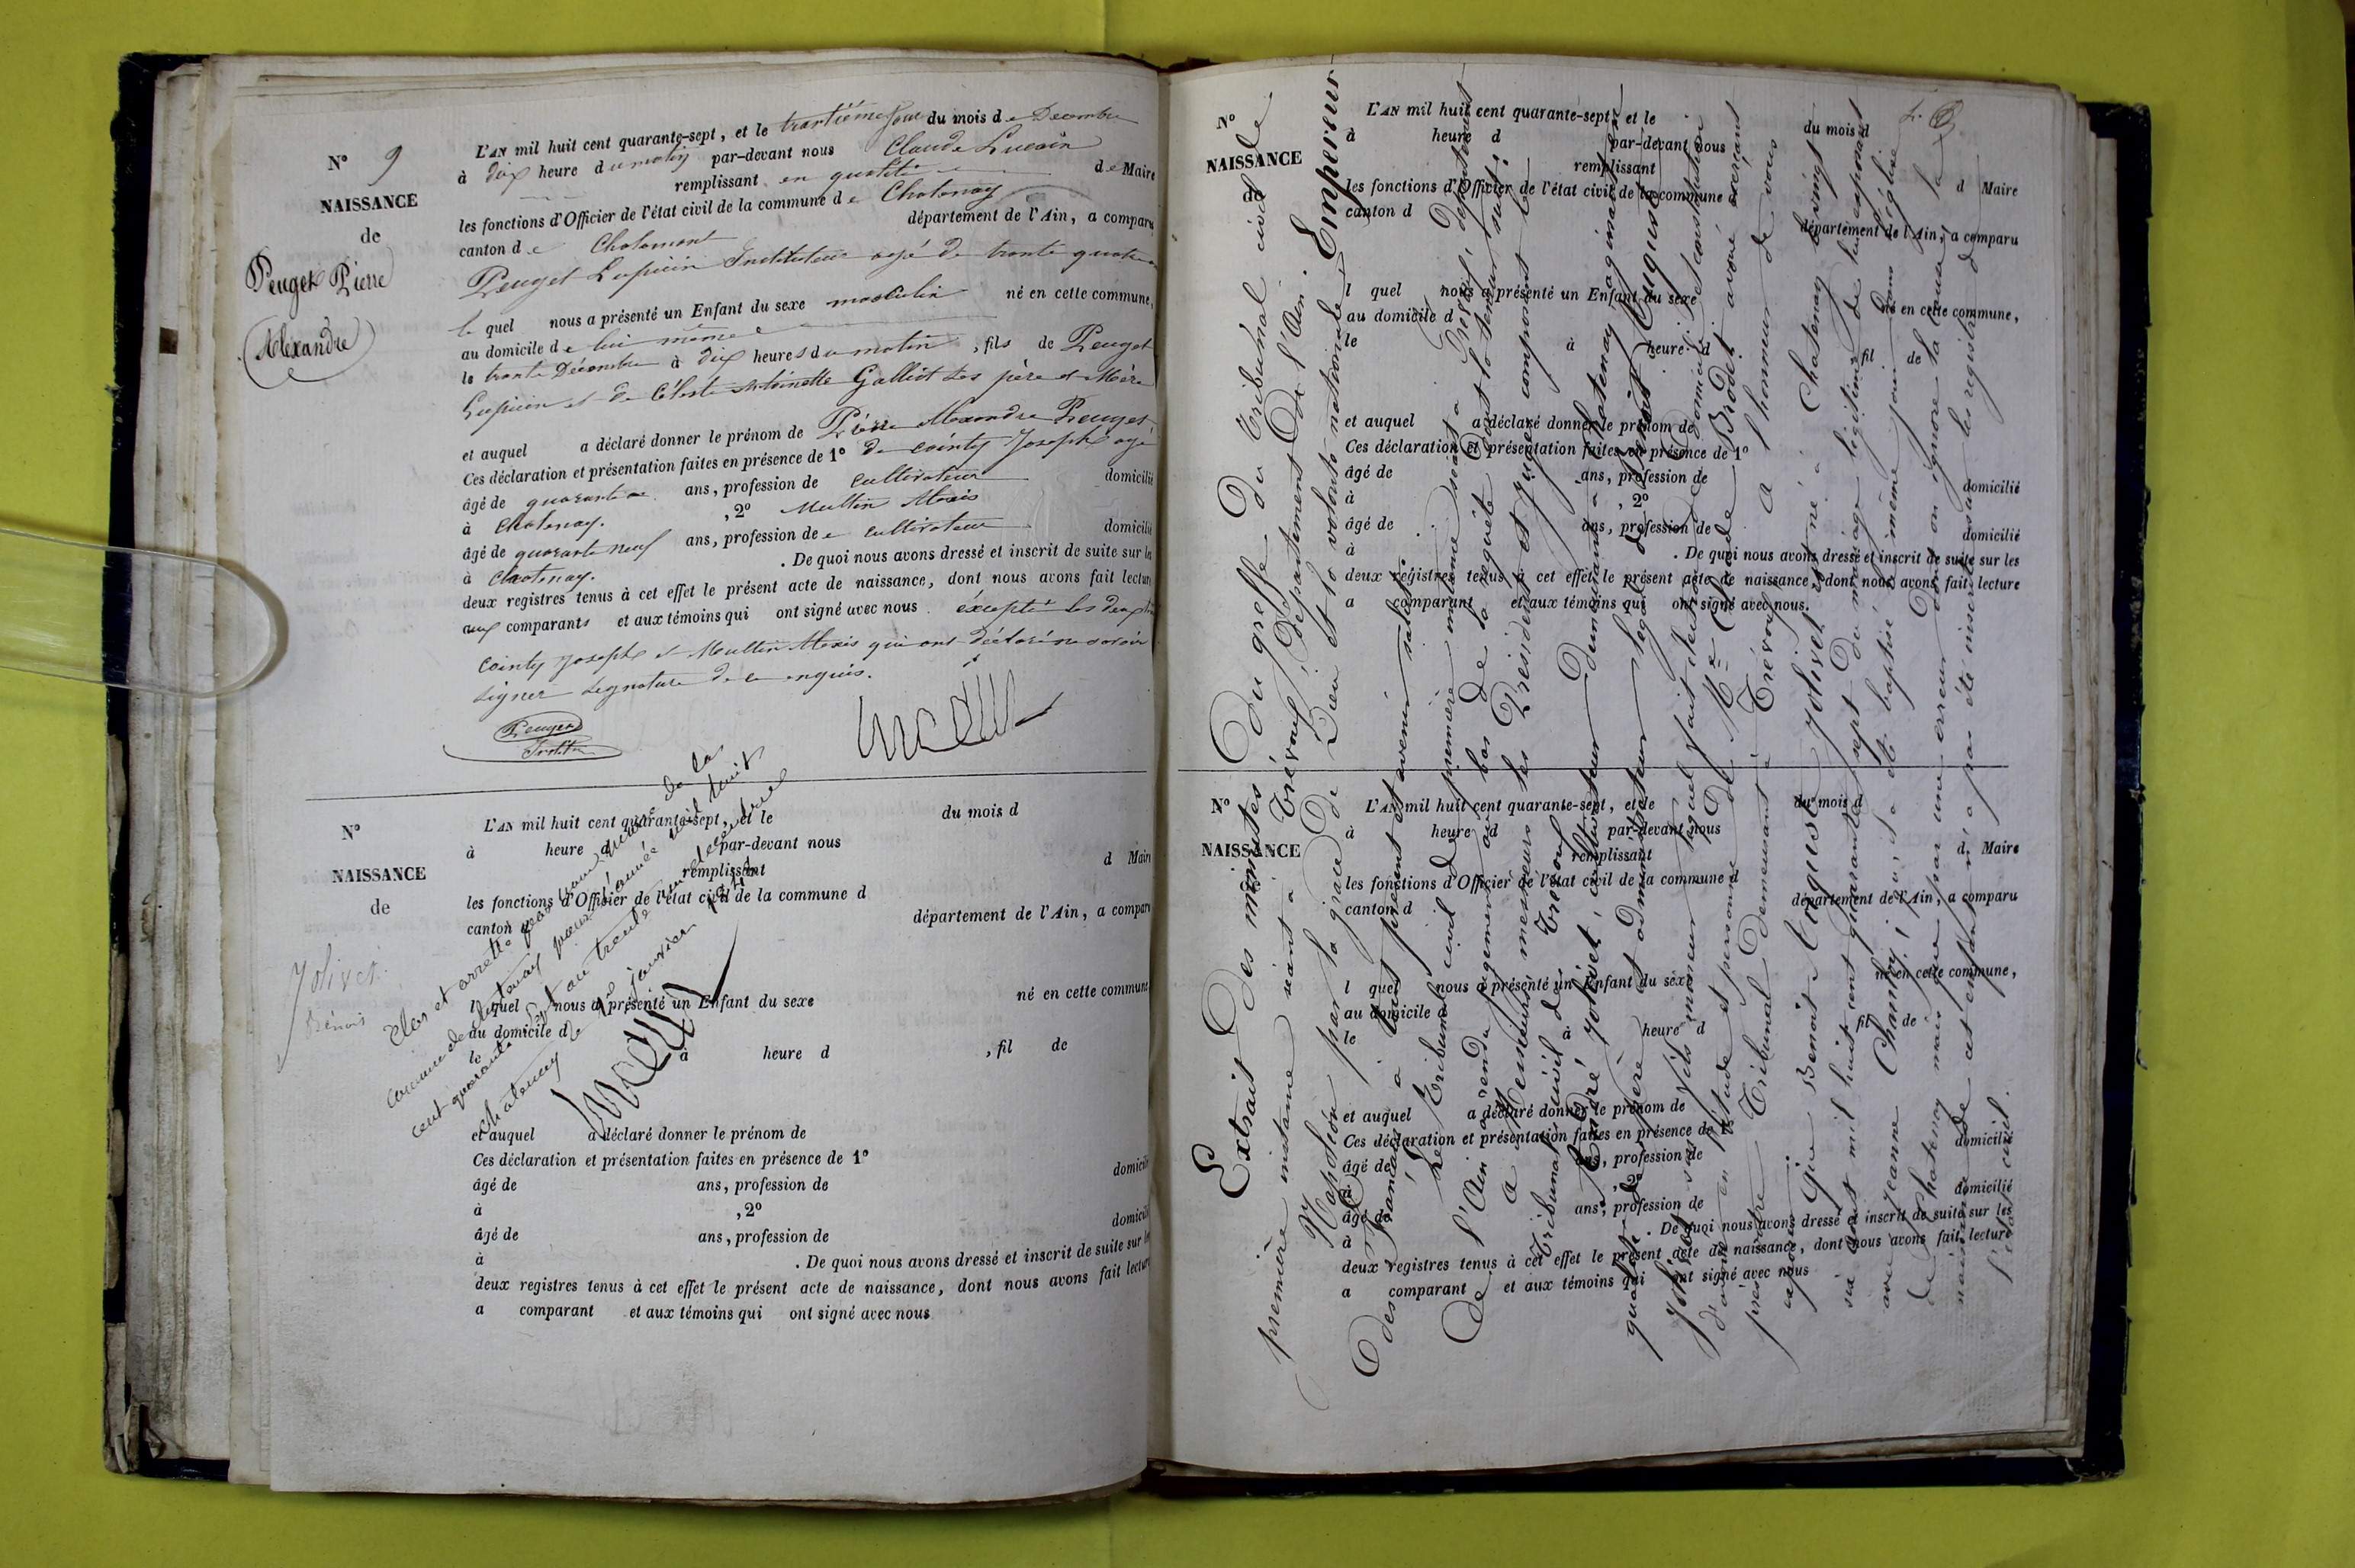 N° 9
NAISSANCE
de
Peuget Pierre
Alexandre
L'AN mil huit cent quarante-sept, et le trantième jour du mois de Décembre
à dix heure du matin par-devant nous Claude Lucain
remplissant en qualité de Maire
les fonctions d'Officier de l'état civil de la commune de Chatenay
canton de Chalamont département de l'Ain, a comparu
Peuget Lupicin Instituteur agé de trante quatre
le quel nous a présenté un Enfant du sexe masculin né en cette commune,
au domicile de lui même
le trante Décembre à dix heures du matin, fils de Peuget
Lupicin et de Céleste Antoinette Galliot ses père et Mère
et auquel a déclaré donner le prénom de Pierre Alexandre Peuget
Ces déclaration et présentation faites en présence de 1° de cointy Joseph agé
âgé de quarante ans, profession de cultivateur domicilié
à Chatenay. , 2° Multin Alexis
âgé de quarante neuf ans, profession de cultivateur domicilié
à Chatenay. . De quoi nous avons dressé et inscrit de suite sur les
deux registres tenus à cet effet le présent acte de naissance, dont nous avons fait lecture
aux comparants et aux témoins qui ont signé avec nous excepté les deux
cointy Joseph et Multin Alexis qui ont déclaré ne savoir
signer signature de ce enquis.
Peuget
Lucain
N°
NAISSANCE
de
Jolivet
Bénoit
L'AN mil huit cent quarante-sept, et le du mois d
à heure d par-devant nous
remplissant d Maire
les fonctions d'Officier de l'état civil de la commune d
canton d département de l'Ain, a comparu
l quel nous a présenté un Enfant du sexe né en cette commune
au domicile d
le à heure d , fil de
et auquel a déclaré donner le prénom de
Ces déclaration et présentation faites en présence de 1°
âgé de ans, profession de domicilié
à , 2°
âgé de ans, profession de domicilié
à . De quoi nous avons dressé et inscrit de suite sur les
deux registres tenus à cet effet le présent acte de naissance, dont nous avons fait lecture
a comparant et aux témoins qui ont signé avec nous
Clos et arretté par nous maire de la
commune de chatenay pour l'année mil huit
cent quarante sept au trente un décembre
Chatenay le 1er janvier
Lucain
N°
NAISSANCE
de
L'AN mil huit cent quarante-sept, et le du mois d
à heure d par-devant nous
remplissant d Maire
les fonctions d'Officier de l'état civil de la commune d
canton d département de l'Ain, a comparu
l quel nous a présenté un Enfant du sexe né en cette commune,
au domicile d
le à heure d fil de
et auquel a déclaré donner le prénom de
Ces déclaration et présentation faites en présence de 1°
âgé de ans, profession de domicilié
à , 2°
âgé de ans, profession de domicilié
à . De quoi nous avons dressé et inscrit de suite sur les
deux registres tenus à cet effet le présent acte de naissance, dont nous avons fait lecture
a comparant et aux témoins qui ont signé avec nous.
N°
NAISSANCE
L'AN mil huit cent quarante-sept, et le du mois d
à heure d par-devant nous
remplissant d Maire
les fonctions d'Officier de l'état civil de la commune d
canton d département de l'Ain, a comparu
l quel nous a présenté un Enfant du sexe né en cette commune,
au domicile d
le à heure d fil de
et auquel a déclaré donner le prénom de
Ces déclaration et présentation faites en présence de 1°
âgé de ans, profession de domicilié
à , 2°
âgé de ans, profession de domicilié
à . De quoi nous avons dressé et inscrit de suite sur les
deux registres tenus à cet effet le présent acte de naissance, dont nous avons fait lecture
a comparant et aux témoins qui ont signé avec nous
Extrait Des minutes Du greffe Du Tribunal civil de
première instance séant à Trévoux, Département De l'Ain.
Napoléon par la grace De Dieu et la volonté nationale, Empereur
Des Français, à tous présent et avenir, salut.
Le Tribunal civil de première instance séant à Trévoux, département
De l'Ain a rendu jugement au bas de la requête dont la teneur suit.
a Messieurs, messieurs les Président et Juges composant le
Tribunal civil de Trévoux
André Jolivet, cultivateur Demeurant à Chatenay, agissant en
qualité de père et administrateur légal de Benoit Auguste
Jolivet son fils mineur, lequel fait élection de domicile et constitution
d'avoué en l'étude et personne de Me Claude Brodet avoué exerçant
près votre Tribunal Demeurant à Trévoux A l'honneur de vous
exposer que Benoit Auguste Jolivet est né à Chatenay le vingt
six août mil huit cent quarante sept Du mariage légitime de lui exposant
avec Jeanne Chanoy, qu'il a été baptisé le même jour dans l'église
de Chatenay mais que par une erreur dont on ignore la cause la
naissance de cet enfant n'a pas été inscrite sur les registres de
l'état civil.